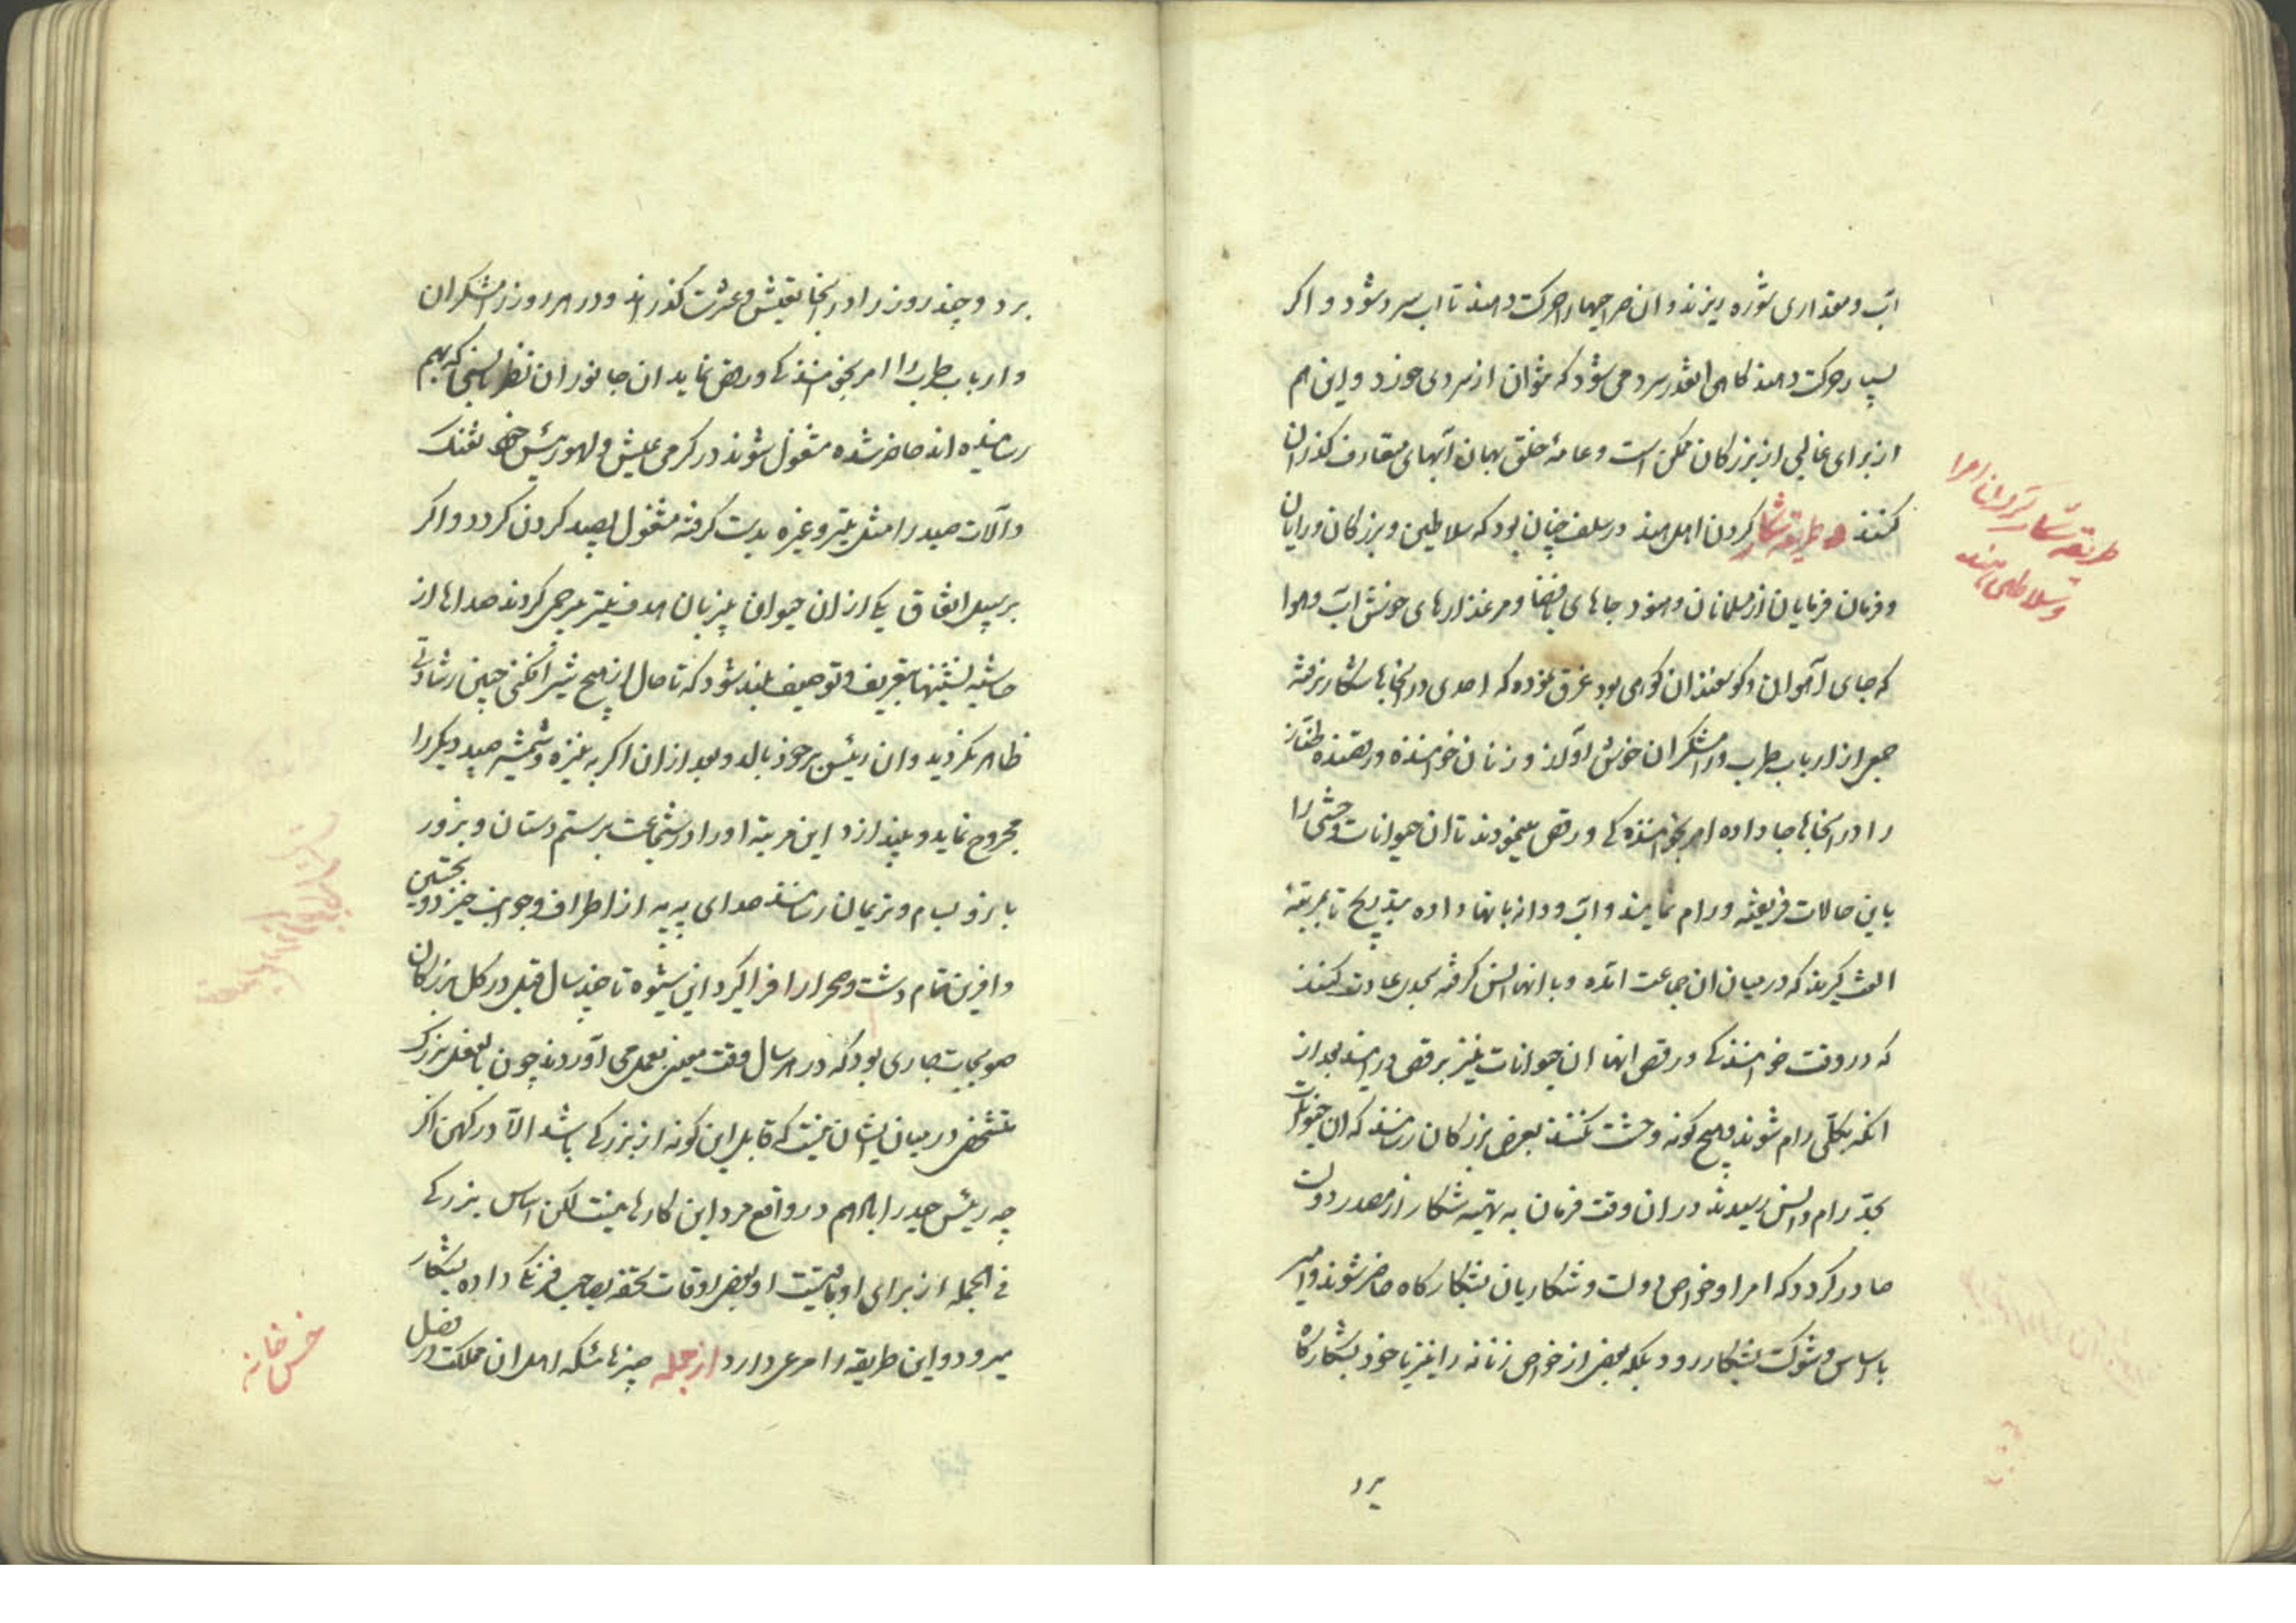 اب و مقداری شوره ریزند و ان صراحیها را حرکت دهند تا اب سرد شود و اکر
بسیار حرکت دهند کاهی انقدر سرد می شود که نتوان از سردی خورد و این هم
از برای غالبی از بزرکان ممکن است و عامۀ خلق بهمان آبهای متعارف کذران
کنند و طریقه شکار کردن اهل هند در سلف چنان بود که سلاطین و بزرکان و رایان
و فرمان فرمایان از مسلمانان و هنود جاهای با فضا و مرغزارهای خوش اب و هوا
که جای آهوان و کوسفندان کوهی بود غرق نموده که احدی در انجاها شکار نرفته
جمعی از ارباب طرب و رامشکران خوش اواز و زنان خواننده و رقصنده طناز
را در انجاها جا داده امر بخوانندکی و رقص مینمودند تا ان حیوانات وحشی را
باین حالات فریفته و رام نمایند و اب و دانه بانها داده بتدریج تا بمرتبۀ
الفت کیرند که در میان ان جماعت امده و با انها انس کرفته بحدی عادت کنند
که در وقت خوانندکی و رقص انها ان حیوانات نیز برقص درایند بعد از
انکه بکلی رام شوند و هیچ کونه وحشت نکنند بعرض بزرکان رسانند که ان حیوانات
بحد رام و انس رسیدند در ان وقت فرمان به تهیه شکار از مصدر دولت
صادر کردد که امرا و خواص دولت و شکاریان بشکارکاه حاضر شوند و امیر
با اساس و شوکت بشکار رود بلکه بعضی از خواص زنانه را نیز با خود بشکارکاه
برد
طریقه شکار کردن امرا
و سلاطین هند
برد و چند روز را در انجا بعیش و عشرت کذراند و در هر روز رامشکران
و ارباب طرب را امر بخوانندکی و رقص نماید ان جانوران نظر بانسی که بهم
رسانیده اند حاضر شده مشغول شوند در کرمی عیش و لهو رئیس خود تفنک
و آلات صید را مثل تیر و غیره بدست کرفته مشغول بصید کردن کردد و اکر
بر سبیل اتفاق یکی از ان حیوان بی زبان هدف تیر بیرحمی کردند صداها از
حاشیه نشینها بتعریف و توصیف بلند شود که تا حال از هیچ شیر افکنی چنین رشادتی
ظاهر نکردید و ان رئیس بر خود بالد و بعد از ان اکر به نیزه و شمشیر صید دیکر را
مجروح نماید و بیندازد این مرتبه او را در شجاعت برستم دستان و بزور
بازو بسام و نریمان رسانند صدای به به از اطراف و جوانب خیزد و تحسین
و افرین تمام دشت و صحرا را فرا کیرد این شیوه تا چند سال قبل در کل بزرکان
صوبجات جاری بود که در هر سال وقت معین بعمل می آوردند چون بالفعل بزرک
مشخصی در میان ایشان نیست که قابل این کونه از بزرکی باشد الا در کهن اکر
چه رئیس حیدراباد هم در واقع مرد این کارها نیست لکن اساس بزرکی
فی الجمله از برای او باقیست او بعض اوقات
میرود و این طریقه را مرعی دارد از جمله چیزهائیکه اهل ان مملکت در فصل
خس خانه